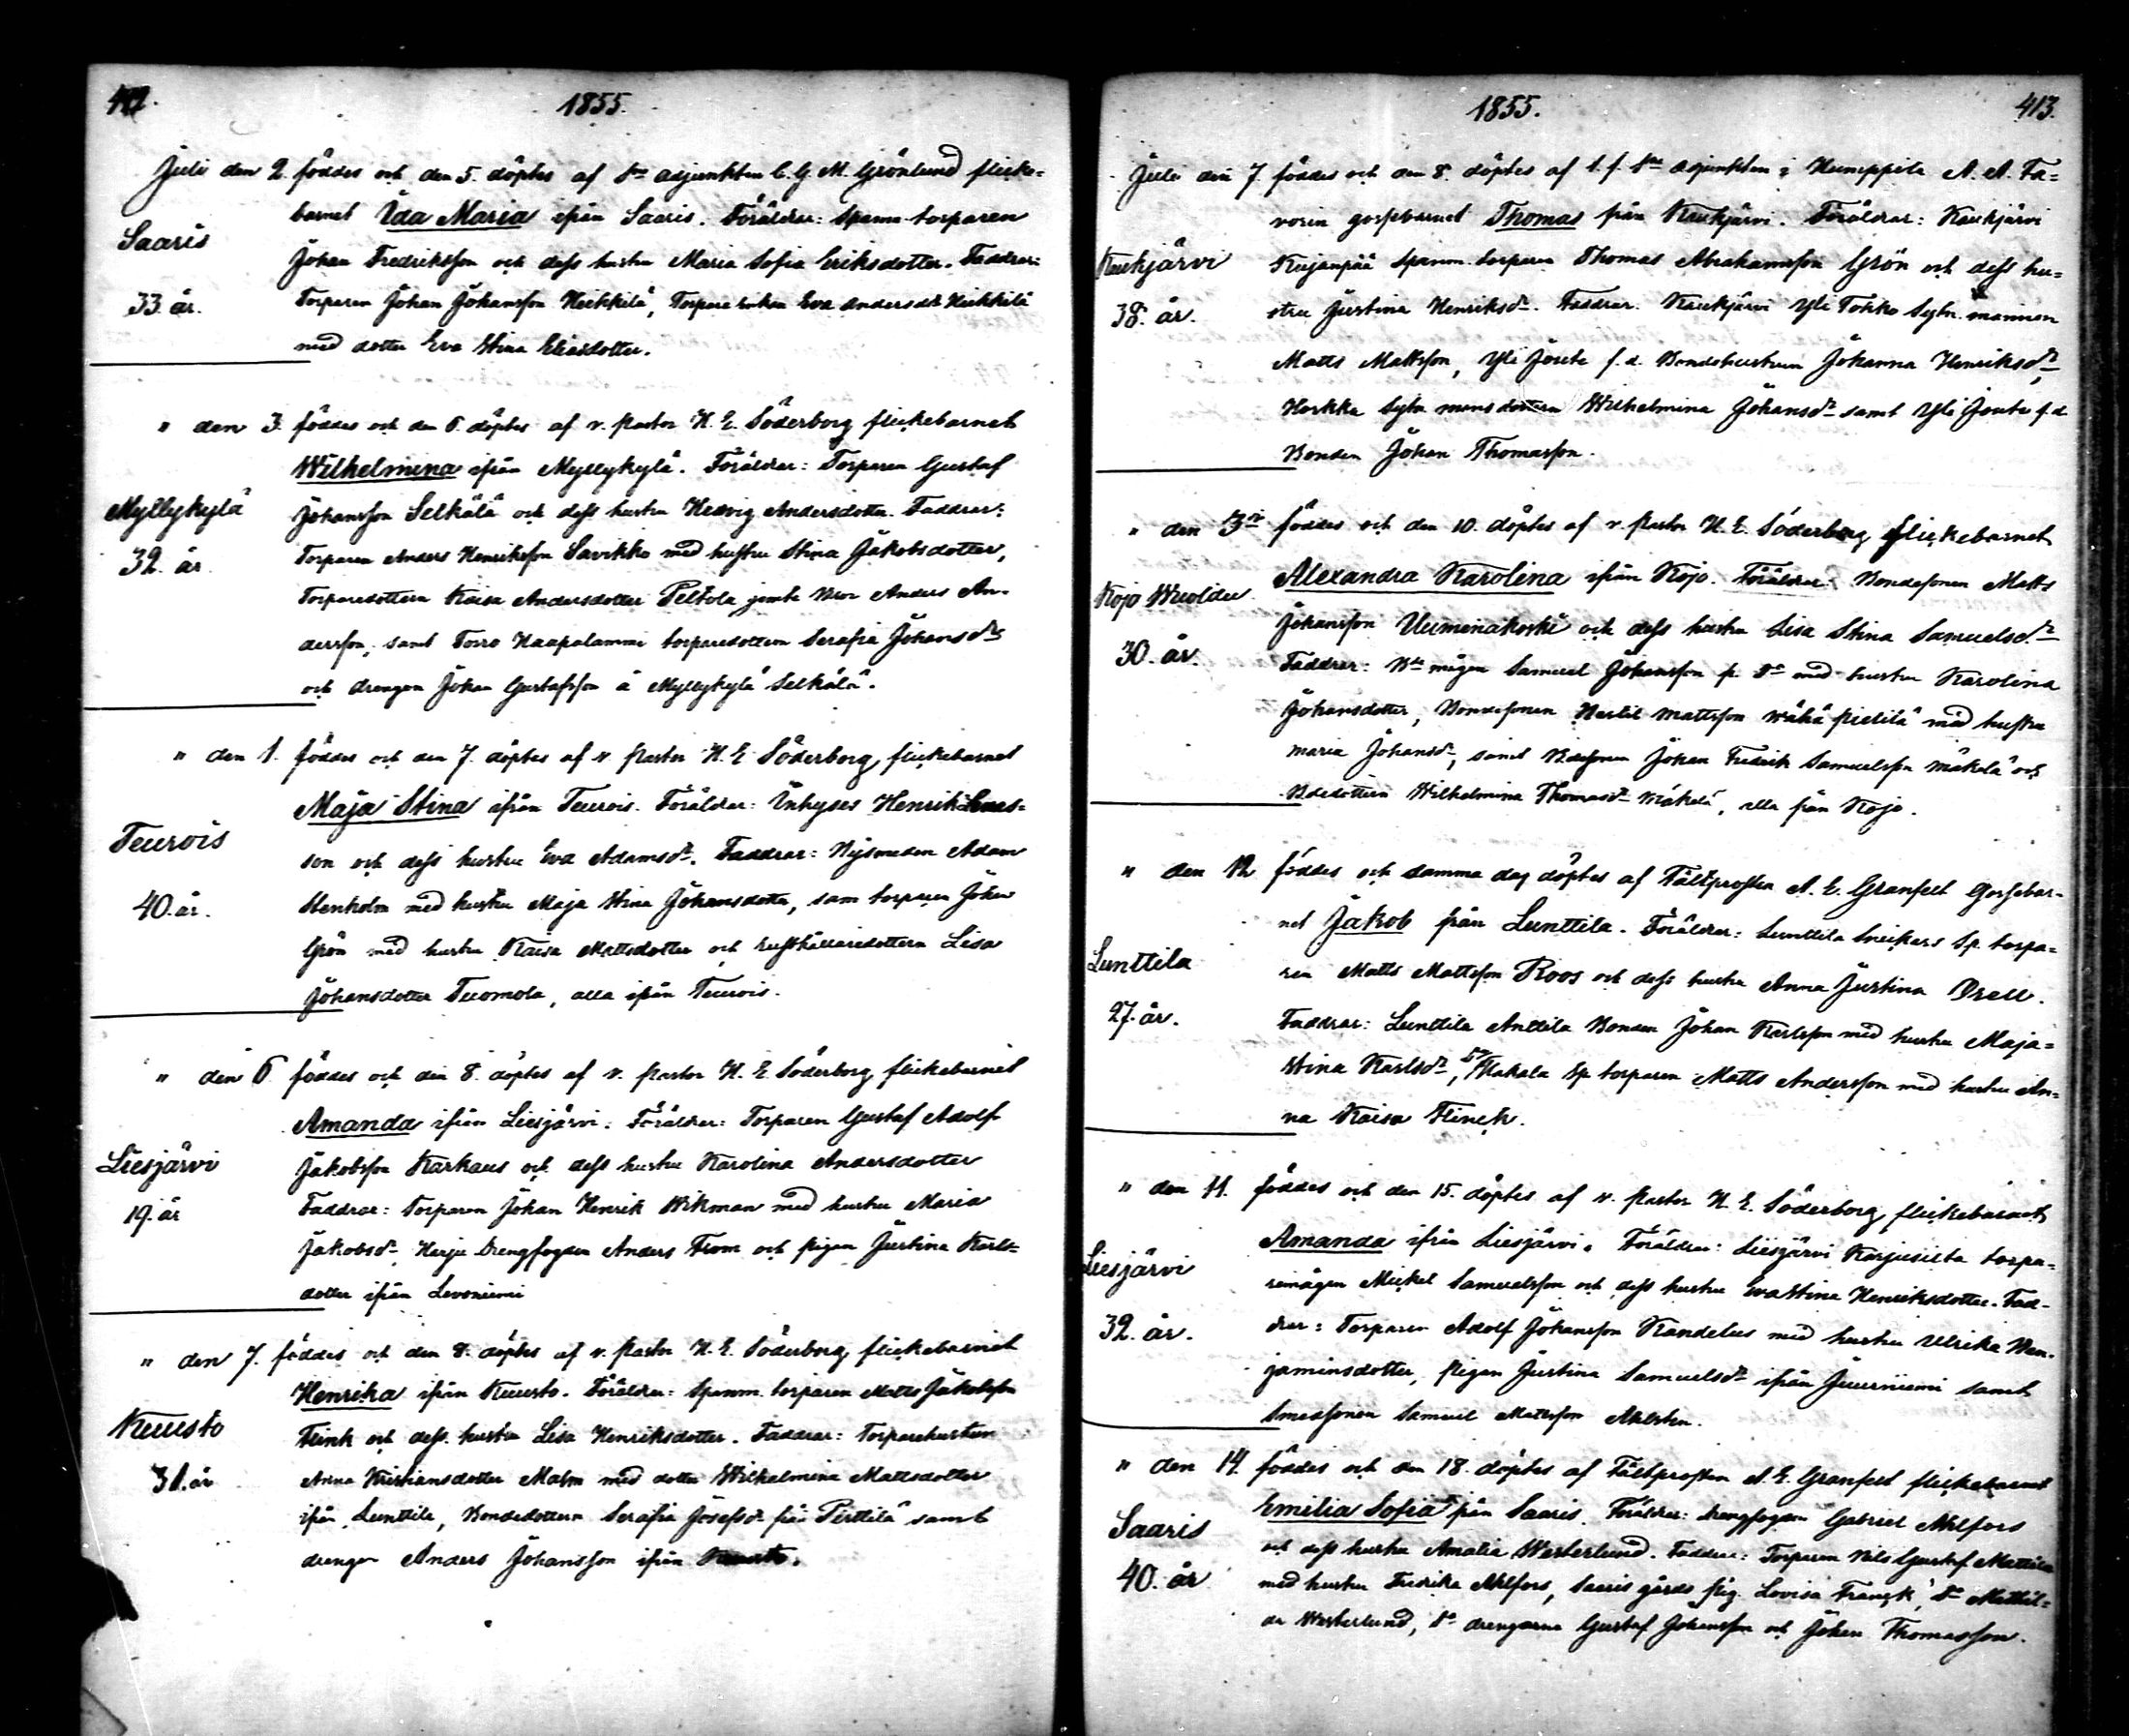 412.
1855.
Juli den 2. föddes och den 5. döptes af s:ne adjunkten C. G. M. Grönlund flicke-
barnet Ida Maria ifrån Saaris. Föräldrar: Spanm. torparen
Saaris
Johan Fredriksson och dess hustru Maria Sofia Eriksdotter. Faddrar:
33. år.
Torparen Johan Johansson Heikkilä, Torpare enkan Eva Andersdr Heikkilä
med dotter Eva Stina Eliasdotter.
" den 3. föddes och den 6. döptes af v. Pastor H. E. Söderborg flickebarnet
Wilhelmina ifrån Myllykylä. Föräldrar: Torparen Gustaf
Myllykylä
Johansson Selkälä och dess hustru Hedvig Andersdotter. Faddrar:
32. år
Torparen Anders Henriksson Savikko med hustru Stina Jakobsdotter,
Torparedottern Kaisa Andersdotter Peltola jemte Bror Anders An-
dersson, samt Torro Haapalammi torparedottern Serafia Johansdr
och drengen Johan Gustafsson å Myllykylä Selkälä.
" den 1. föddes och den 7. döptes af v. Pastor H. E. Söderborg flickebarnet
Maja Stina ifrån Teurois. Föräldrar: Inhyses Henrik
Teurois
son och dess hustru Eva Adamsdr. Faddrar: Bysmeden Adam
40. år.
Stenholm med hustru Maja Stina Johansdotter, sam torparen Johan
Grön med hustru Kaisa Mattsdotter och rusthållaredottern Lisa
Johansdotter Tuomola, alla ifrån Teurois.
" den 6. föddes och den 8. döptes af v. Pastor H. E. Söderborg flickebarnet
Amanda ifrån Liesjärvi. Föräldrar: Torparen Gustaf Adolf
Liesjärvi
Jakobsson Karhaus och dess hustru Karolina Andersdotter
19. år
Faddrar: Torparen Johan Henrik Wikman med hustru Maria
Jakobsdr, Herju Drengfogden Anders From och pigan Justina Karls-
dotter ifrån Levoniemi
" den 7. föddes och den 8. döptes af v. Pastor H. E. Söderborg flickebarnet
Henrika ifrån Kuusto. Föräldrar: Spanm. torparen Matts Jakobsson
Kuusto
Flink och dess hustru Lisa Henriksdotter. Faddrar: Torparehustrun
31. år
Anna Kristiansdotter Malm med dotter Wilhelmina Mattsdotter
ifrån Lunttila, Bondedottern Serafia Josefsdr från Perttilä samt
drengen Anders Johansson ifrån Kuusto.
1855.
413.
Juli den 7. föddes och den 8. döptes af t. f. s:ne adjunkten i Humppila A. A. Fa-
vorin gossebarnet Thomas från Kaukjärvi. Föräldrar: Kaukjärvi
Kaukjärvi
Kujanpää Spanm. torparen Thomas Abrahamsson Grön och dess hu-
38. år.
stru Justina Henriksdr. Faddrar: Kaukjärvi Yli Tokko Sytn. mannen
Matts Mattsson, Yli Jouta f. d. Bondehustrun Johanna Henriksdr,
Horkka Sytn mansdottern Wilhelmina Johansdr samt Yli Jouta f. d.
Bonden Johan Thomasson.
" den 3dje föddes och den 10. döptes af v. Pastor H. E. Söderborg flickebarnet
Alexandra Karolina ifrån Kojo. Föräldrar: Bondesonen Matts
Kojo
30. år.
Johansson Uuminakoski och dess hustru Lisa Stina Samuelsdr
Faddrar: Bde mågen Samuel Johansson p. do med hustru Karolina
Johansdotter, Bondesonen Kertil Mattsson Wähä Pietilä med hustru
Maria Johansdr, samt Bdesonen Johan Fredrik Samuelsson Mäkelä och
Bdedottern Wilhelmina Thomasdr Mäkelä, alla från Kojo.
" den 12. föddes och samma dag döptes af Fältprosten A. E. Granfelt gossebar-
net Jakob från Lunttila. Föräldrar: Lunttila Sneikars Sp. torpa-
Lunttila
ren Matts Mattsson Roos och dess hustru Anna Justina Drell.
27. år.
Faddrar: Lunttila Anttila Bonden Johan Karlsson med hustru Maja-
Stina Karlsdr, Kakala Sp torparen Matts Andersson med hustru An-
na Kaisa Flinck.
" den 11. föddes och den 15. döptes af v. Pastor H. E. Söderborg flickebarnet
Amanda ifrån Liesjärvi. Föräldrar: Liesjärvi Korjusilta torpa-
Liesjärvi
remågen Mickel Samuelsson och dess hustru Eva Stina Henriksdotter. Fad-
32. år.
drar: Torparen Adolf Johansson Kandelus med hustru Ulrika Ben-
jaminsdotter, pigan Justina Samuelsdr ifrån Juurniemi samt
Smedsonen Samuel Mattsson Ahlsten.
" den 14. föddes och den 18. döptes af Fältprosten A. E. Granfelt flickebarnet
Emilia Sofia från Saaris. Föräldrar: Drengfogden Gabriel Ahlfors
Saaris
och dess hustru Amalia Westerlund. Faddrar: Torparen Nils Gustaf Mattila
40. år
med hustru Fredrika Ahlfors, Saaris gårds pig. Lovisa Franzk, do Mathil-
da Westerlund, do drengarna Gustaf Johansson och Johan Thomasson.